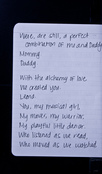 Were, are still, a perfect
combination of me and Daddy
Mommy
Daddy

With the alchemy of love
We created you.
Leana
You, my magical girl
My mystic, my warrior,
My playful little dancer
Who listened as we read,
Who moved as we watched.